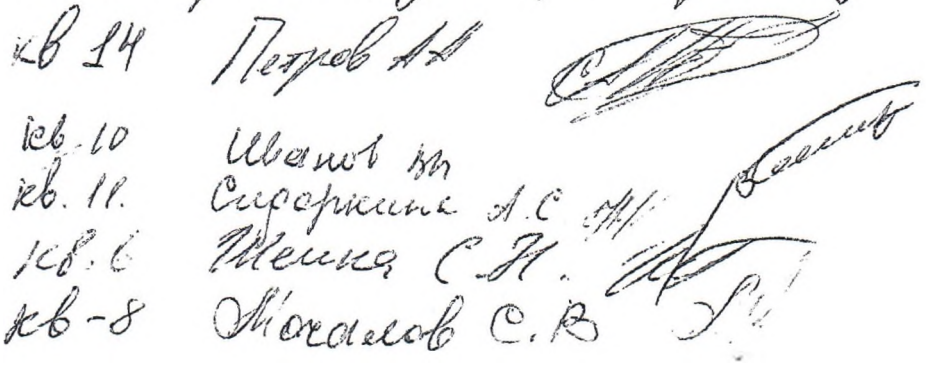 кв 14 Петров АА
кв. 10 Иванов
кв. 11. Сидоркина А.С
кв. 6 С.Н.
кв-8 Мочалов С.В